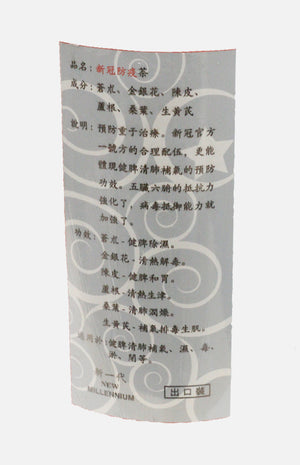 品名：新冠防疫茶
成分：蒼朮、金銀花、陳皮、
蘆根、桑葉、生黃芪
說明：預防重于治療。新冠官方
一號方的合理配伍，更能
體現健脾清肺補氣的預防
功效。五臟六腑的抵抗力
強化了，病毒抵御能力就
加強了。
功效：蒼朮-健脾除濕。
金銀花-清熱解毒。
陳皮-健脾和胃。
蘆根-清熱生津。
桑葉-清肺潤燥。
生黃芪-補氣排毒生肌。
適用於：健脾清肺補氣、濕、毒、
淤、閉等。
新一代
NEW
MILLENNIUM
出口裝